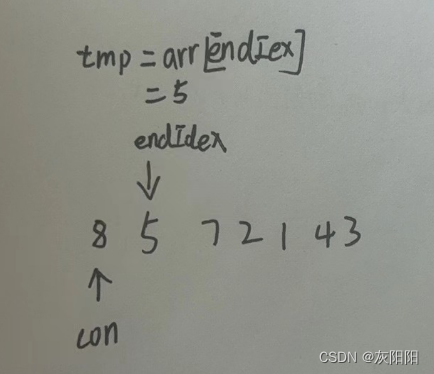 tmp = arr[endIex]
= 5
endIdex
↓
8 5 7 2 1 4 3
↑
con
CSDN @灰阳阳